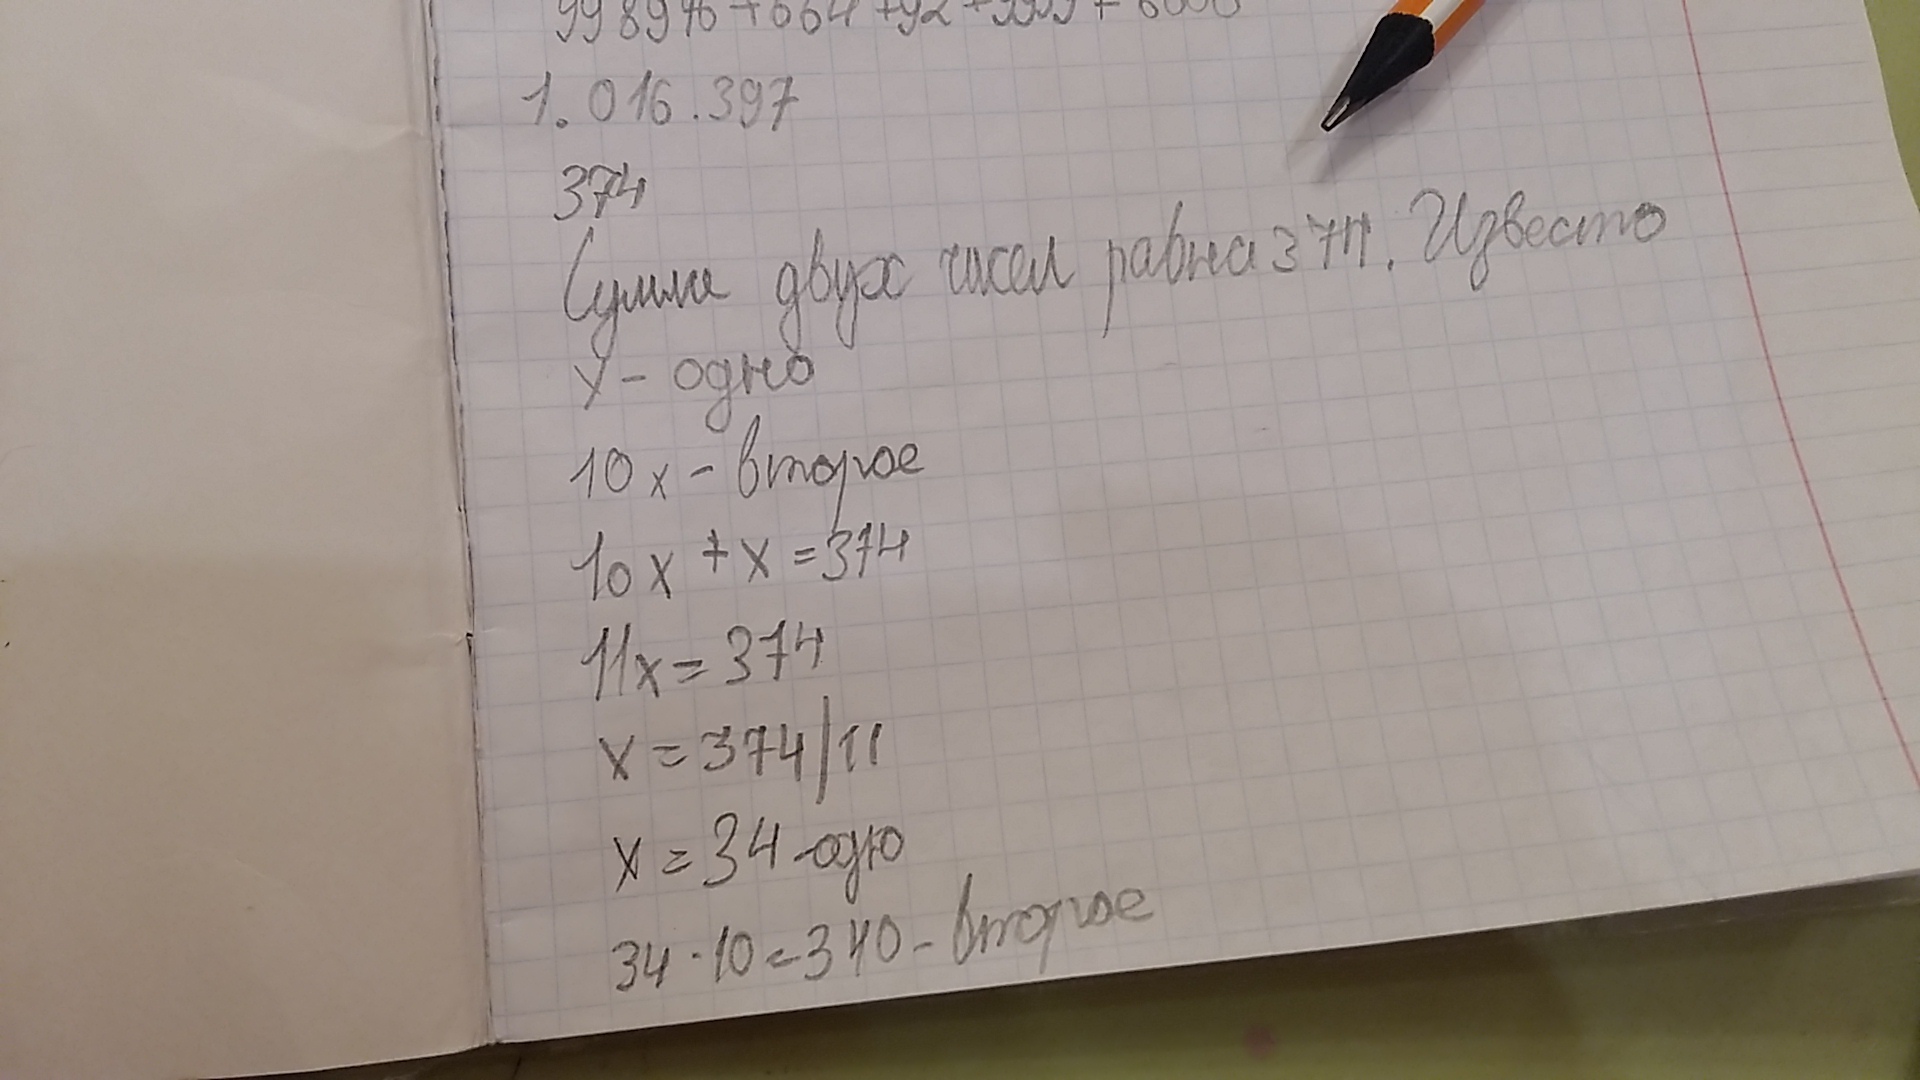 1.016.397
374
Сумма двух чисел равна 374. Известо
X - одно
10x - второе
10x + x = 374
11x = 374
x = 374/11
x = 34 - одно
34 · 10 = 340 - второе